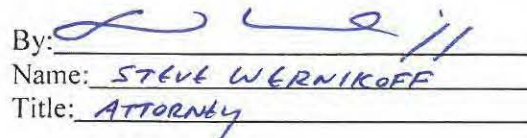 By:
Name: STEVE WERNIKOFF
Title: ATTORNEY